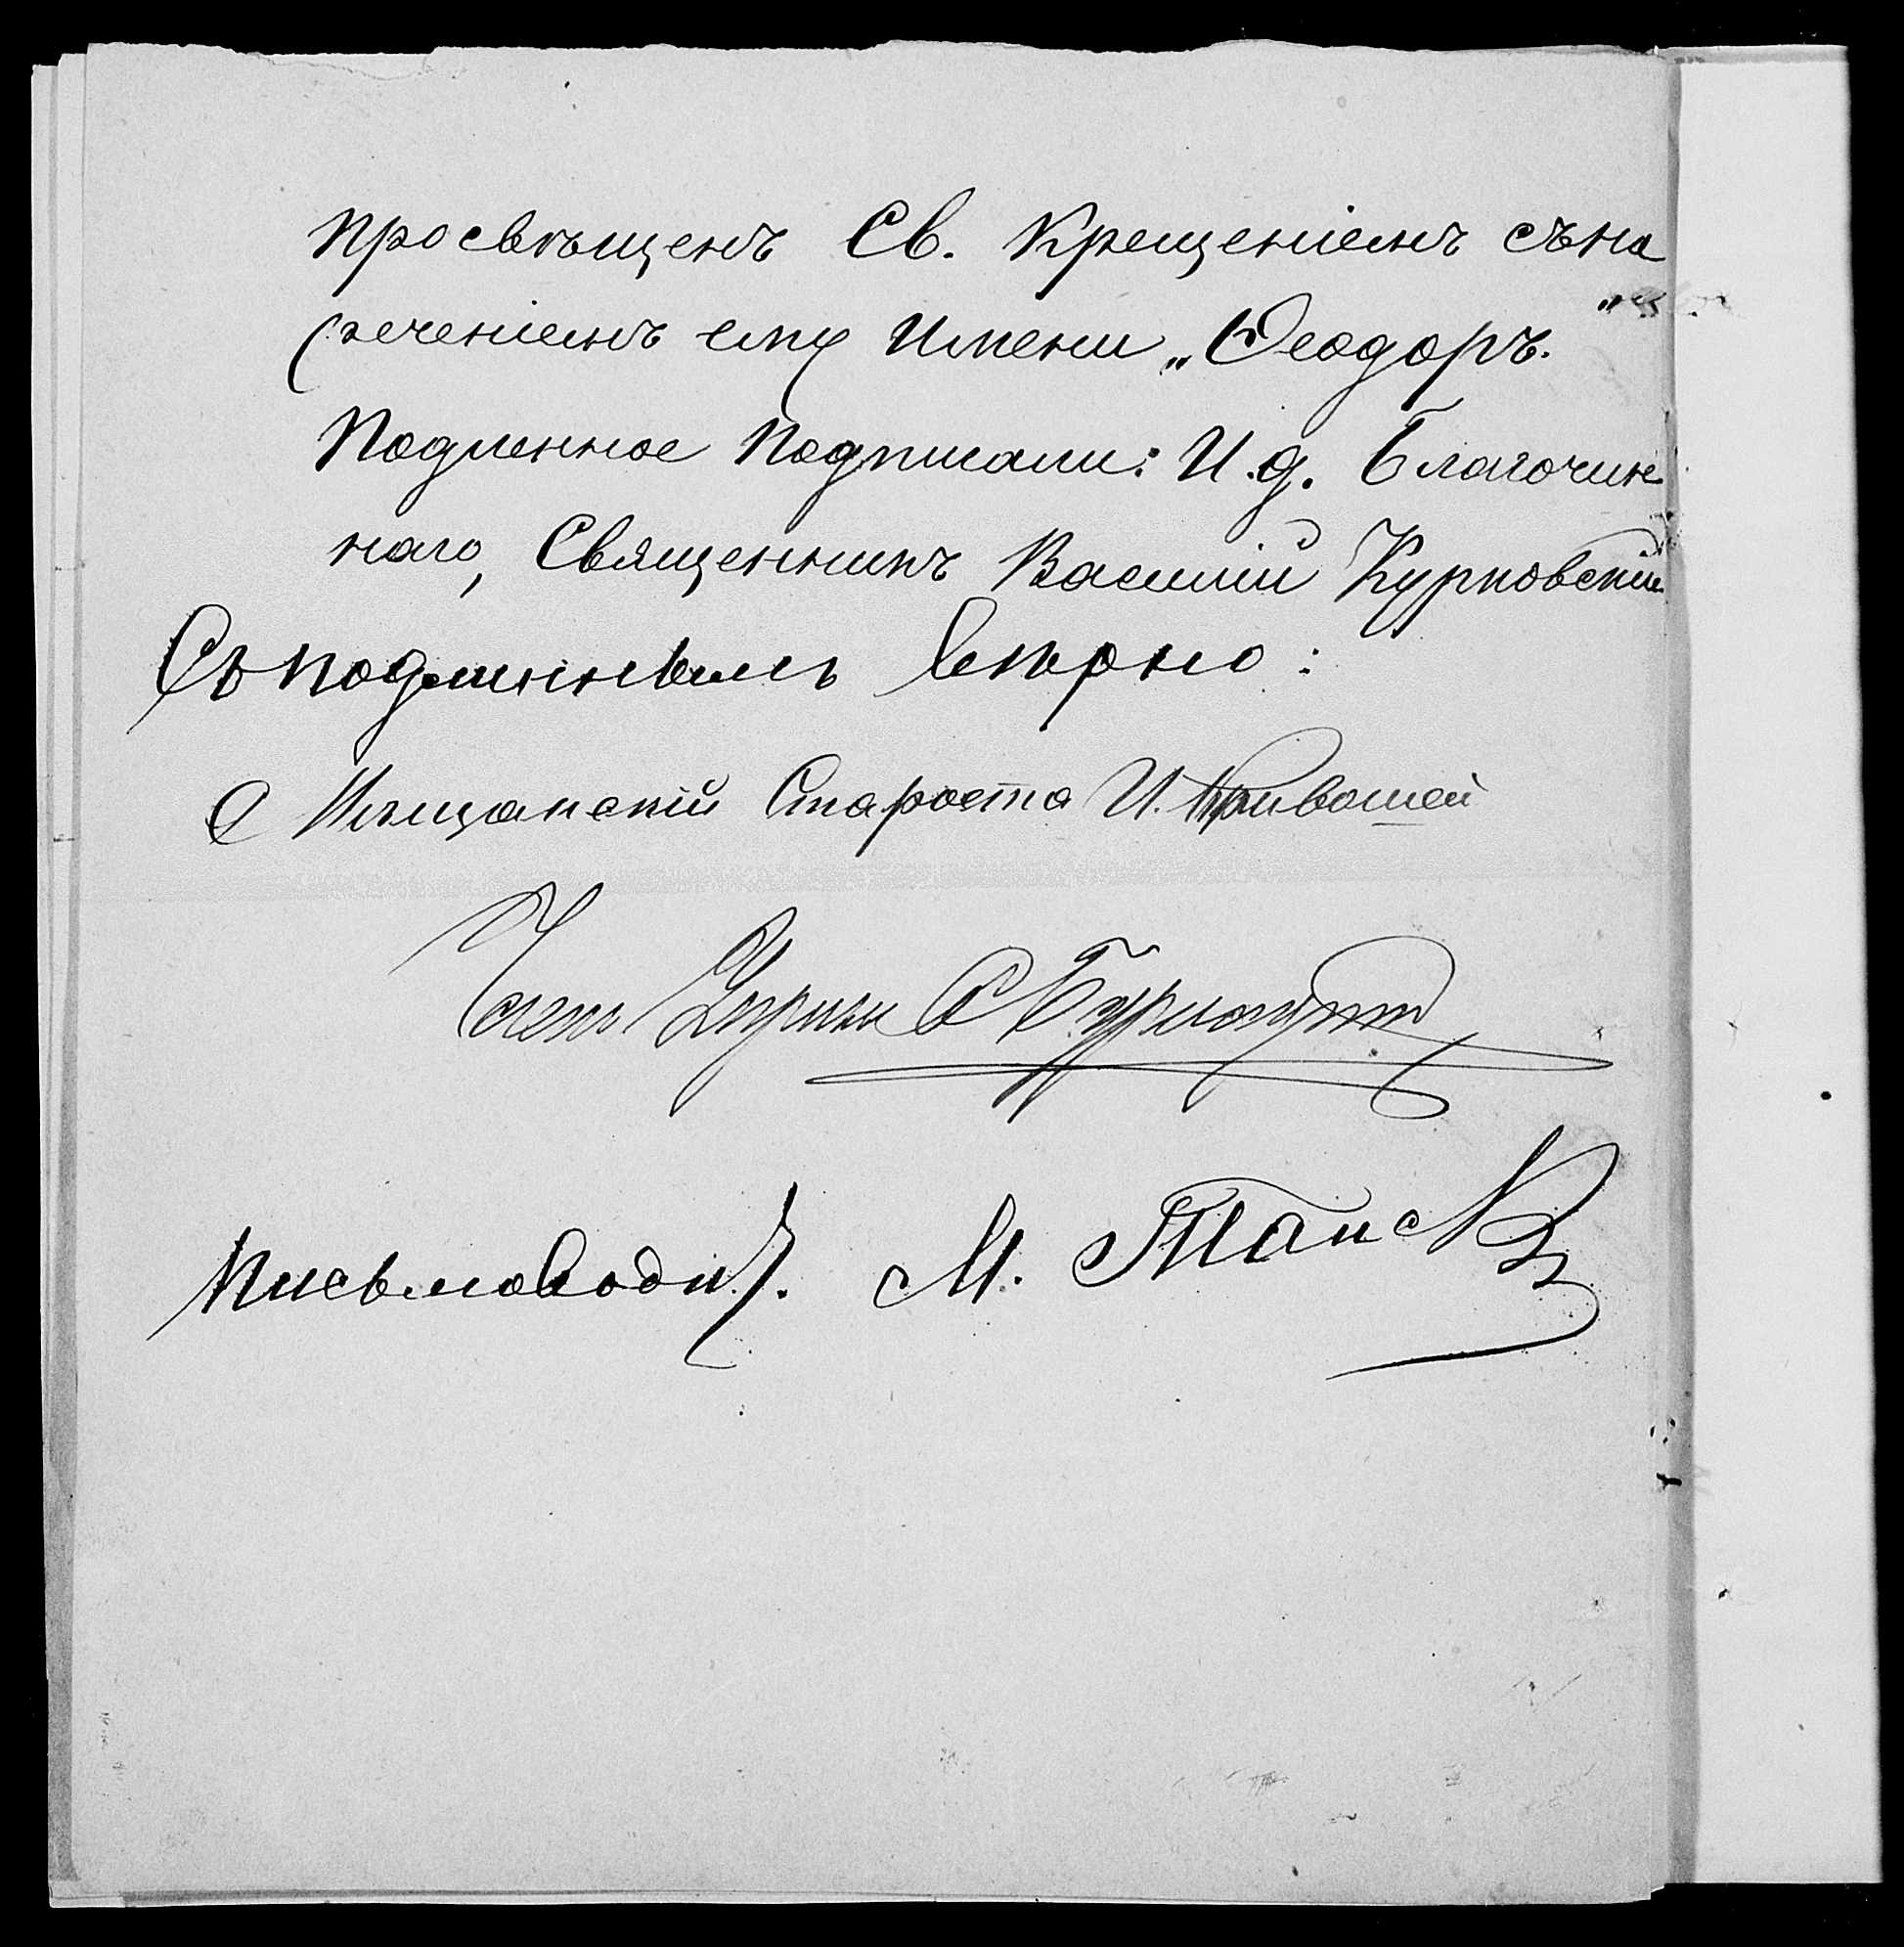 просвѣщенъ Св. Крещеніемъ съ на
реченіемъ ему Имени „Ѳеодоръ."
Подленное подписали: И.д. Благочин
наго, Священникъ Василій Курковскій
Съ подлиннымъ вѣрно:
Мѣщанскій Староста И. Кривошей
Членъ Управы С
Письмоводит. М.